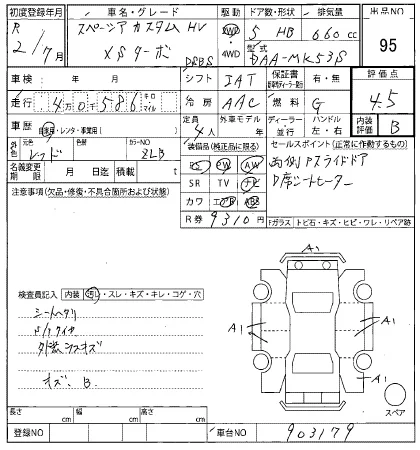 初度登録年月 車名・グレード 駆動 ドア数・形状 排気量 出品NO
R 2/7月 スペーシアカスタム HV XSターボ DRBS 2WD ・ 4WD 5 HB 660 cc 95
型式 DAA-MK53S
車検 : 年 月 シフト IAT 保証書 有・無 評価点
走行 4万0千586 キロ マイル 冷房 AAC 燃料 G 4.5
車歴 : 自家用・レンタ・事業用( ) 定員 4人 外車モデル 年 ディーラー 並行 ハンドル 左・右 内装評価 B
色 元色 レッド カラーNO ZLB
装備品(純正品に限る) セールスポイント(正常に作動するもの)
名義変更期限 月 日迄 積載 t
PS PW AW 両側Pスライドドア
注意事項(欠品・修復・不具合箇所および状態)
SR TV ナビ D席シートヒーター
カワ エアB ABS
R券 9310円
Fガラス トビ石・キズ・ヒビ・ワレ・リペア跡
A1
検査員記入 内装 汚レ・スレ・キズ・キレ・コゲ・穴
シートヘタリ
外装ウスキズ
キズ、B.
A1 A1
A1
スペア
長さ cm 幅 cm 高さ cm
登録NO 車台NO 903179